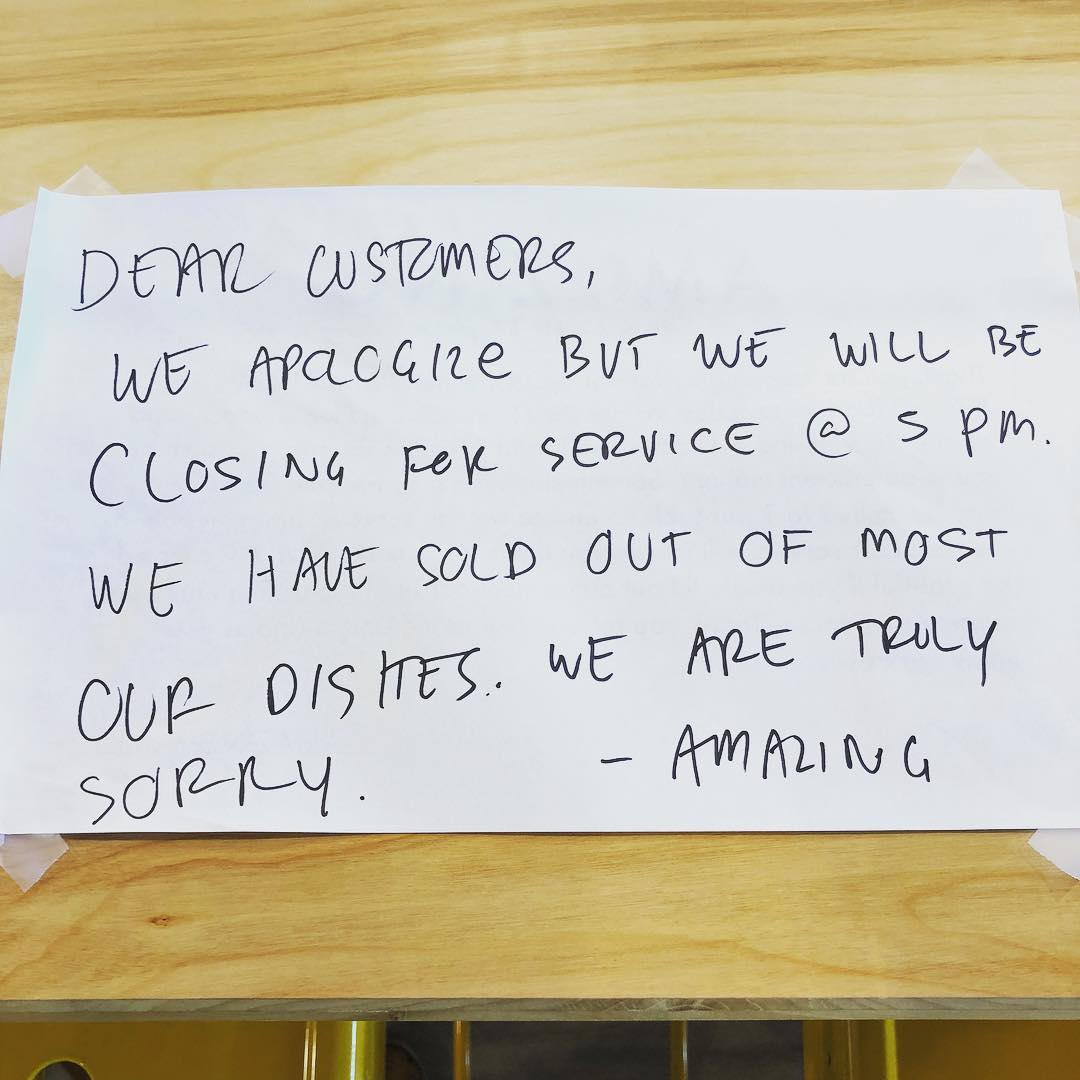 DEAR CUSTOMERS,
WE APOLOGIZE BUT WE WILL BE
CLOSING FOR SERVICE @ 5 PM.
WE HAVE SOLD OUT OF MOST
OUR DISHES. WE ARE TRULY
SORRY. - AMAZING